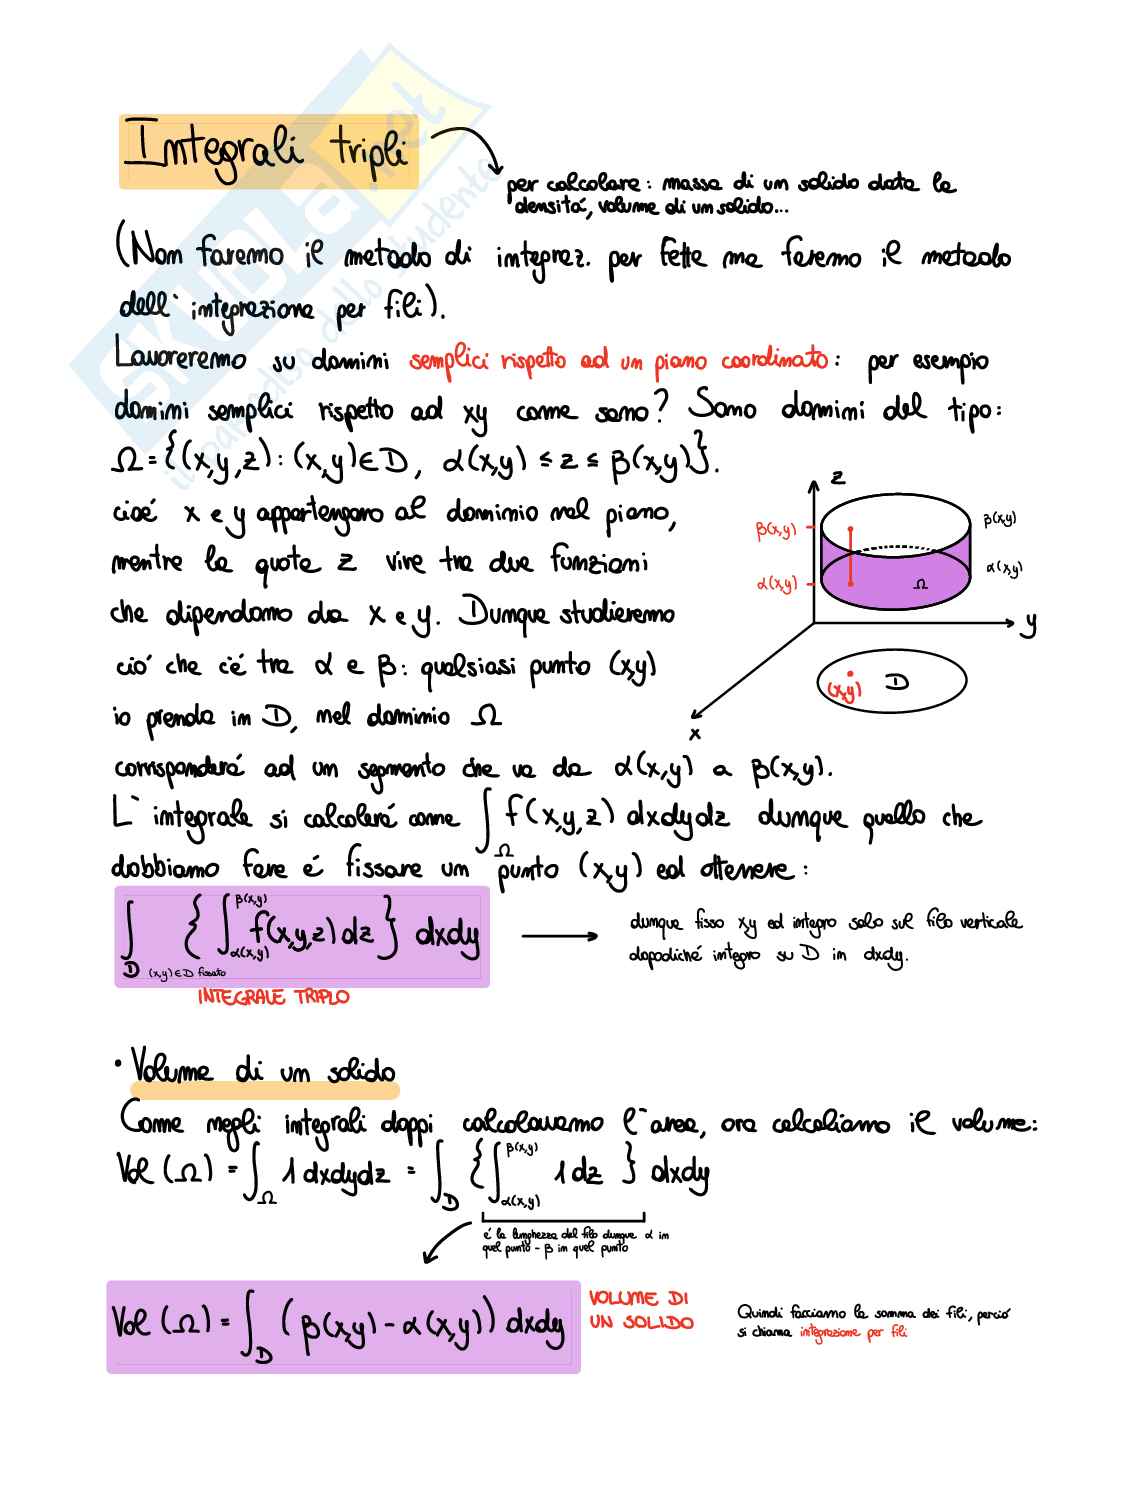 Integrali tripli
per calcolare: massa di un solido data la
densitá, volume di un solido...
(Non faremo il metodo di integraz. per fette ma faremo il metodo
dell' integrazione per fili).
Lavoreremo su domini semplici rispetto ad un piano coordinato: per esempio
domini semplici rispetto ad xy come sono? Sono domini del tipo:
Ω = {(x,y,z) : (x,y) ∈ D, α(x,y) ≤ z ≤ β(x,y)}.
cioé x e y appartengono al dominio nel piano,
mentre la quota z vive tra due funzioni
che dipendono da x e y. Dunque studieremo
ció che c'é tra α e β: qualsiasi punto (x,y)
io prenda in D, nel dominio Ω
corrisponderá ad un segmento che va da α(x,y) a β(x,y).
z
β(x,y)
β(x,y)
α(x,y)
α(x,y)
Ω
y
(x,y)
D
x
L' integrale si calcolerá come ∫_Ω f(x,y,z) dxdydz dunque quello che
dobbiamo fare é fissare un punto (x,y) ed ottenere:
∫_D {∫_α(x,y)^β(x,y) f(x,y,z) dz} dxdy
(x,y) ∈ D fissato
INTEGRALE TRIPLO
dunque fisso x,y ed integro solo sul filo verticale
dopodiché integro su D in dxdy.
• Volume di un solido
Come negli integrali doppi calcolavamo l'area, ora calcoliamo il volume:
Vol (Ω) = ∫_Ω 1 dxdydz = ∫_D {∫_α(x,y)^β(x,y) 1 dz} dxdy
é la lunghezza del filo dunque α in
quel punto - β in quel punto
Vol (Ω) = ∫_D (β(x,y) - α(x,y)) dxdy
VOLUME DI
UN SOLIDO
Quindi facciamo la somma dei fili, perció
si chiama integrazione per fili
SKUOLA.net
il paradiso dello studente